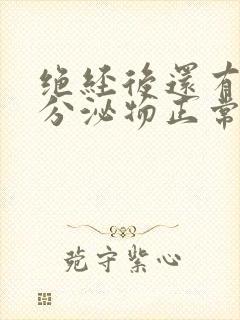 绝经後還有
分泌物正常
菀守紫心